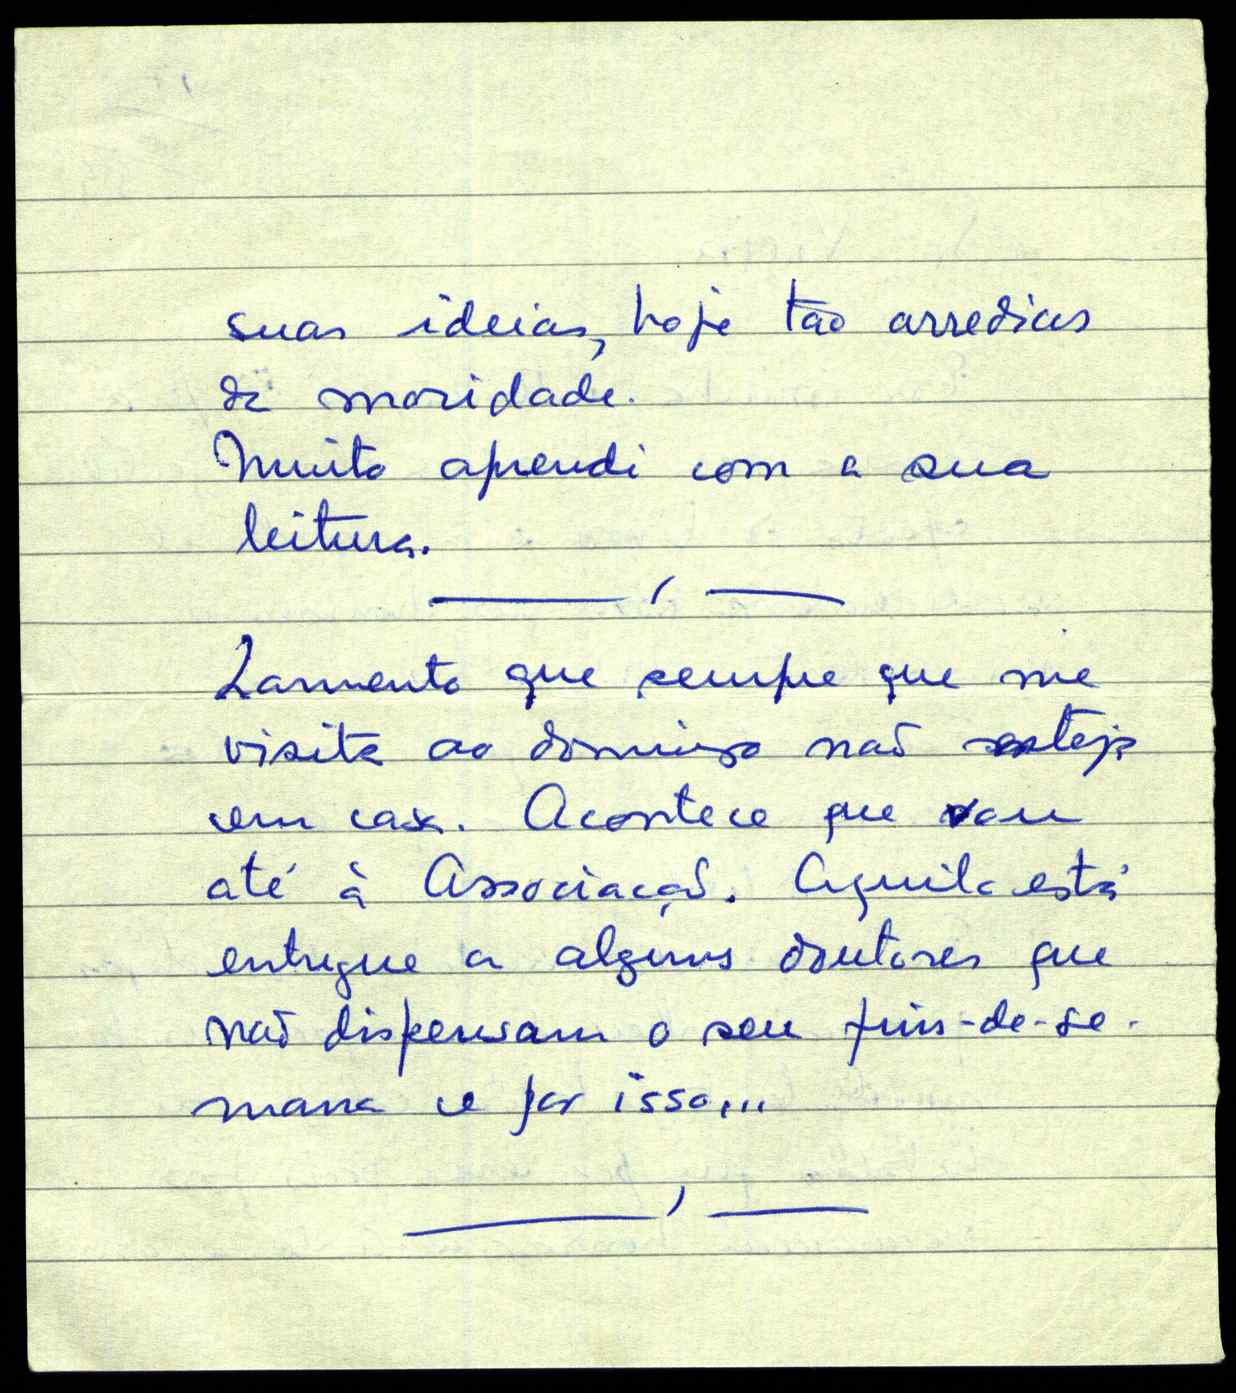 suas ideias, hoje tão arredias
da mocidade.
Muito aprendi com a sua
leitura.
Lamento que sempre que me
visita ao domingo não esteja
em casa. Acontece que vou
até à Associação. Aquilo está
entregue a alguns doutores que
não dispensam o seu fins-de-se-
mana e por isso...